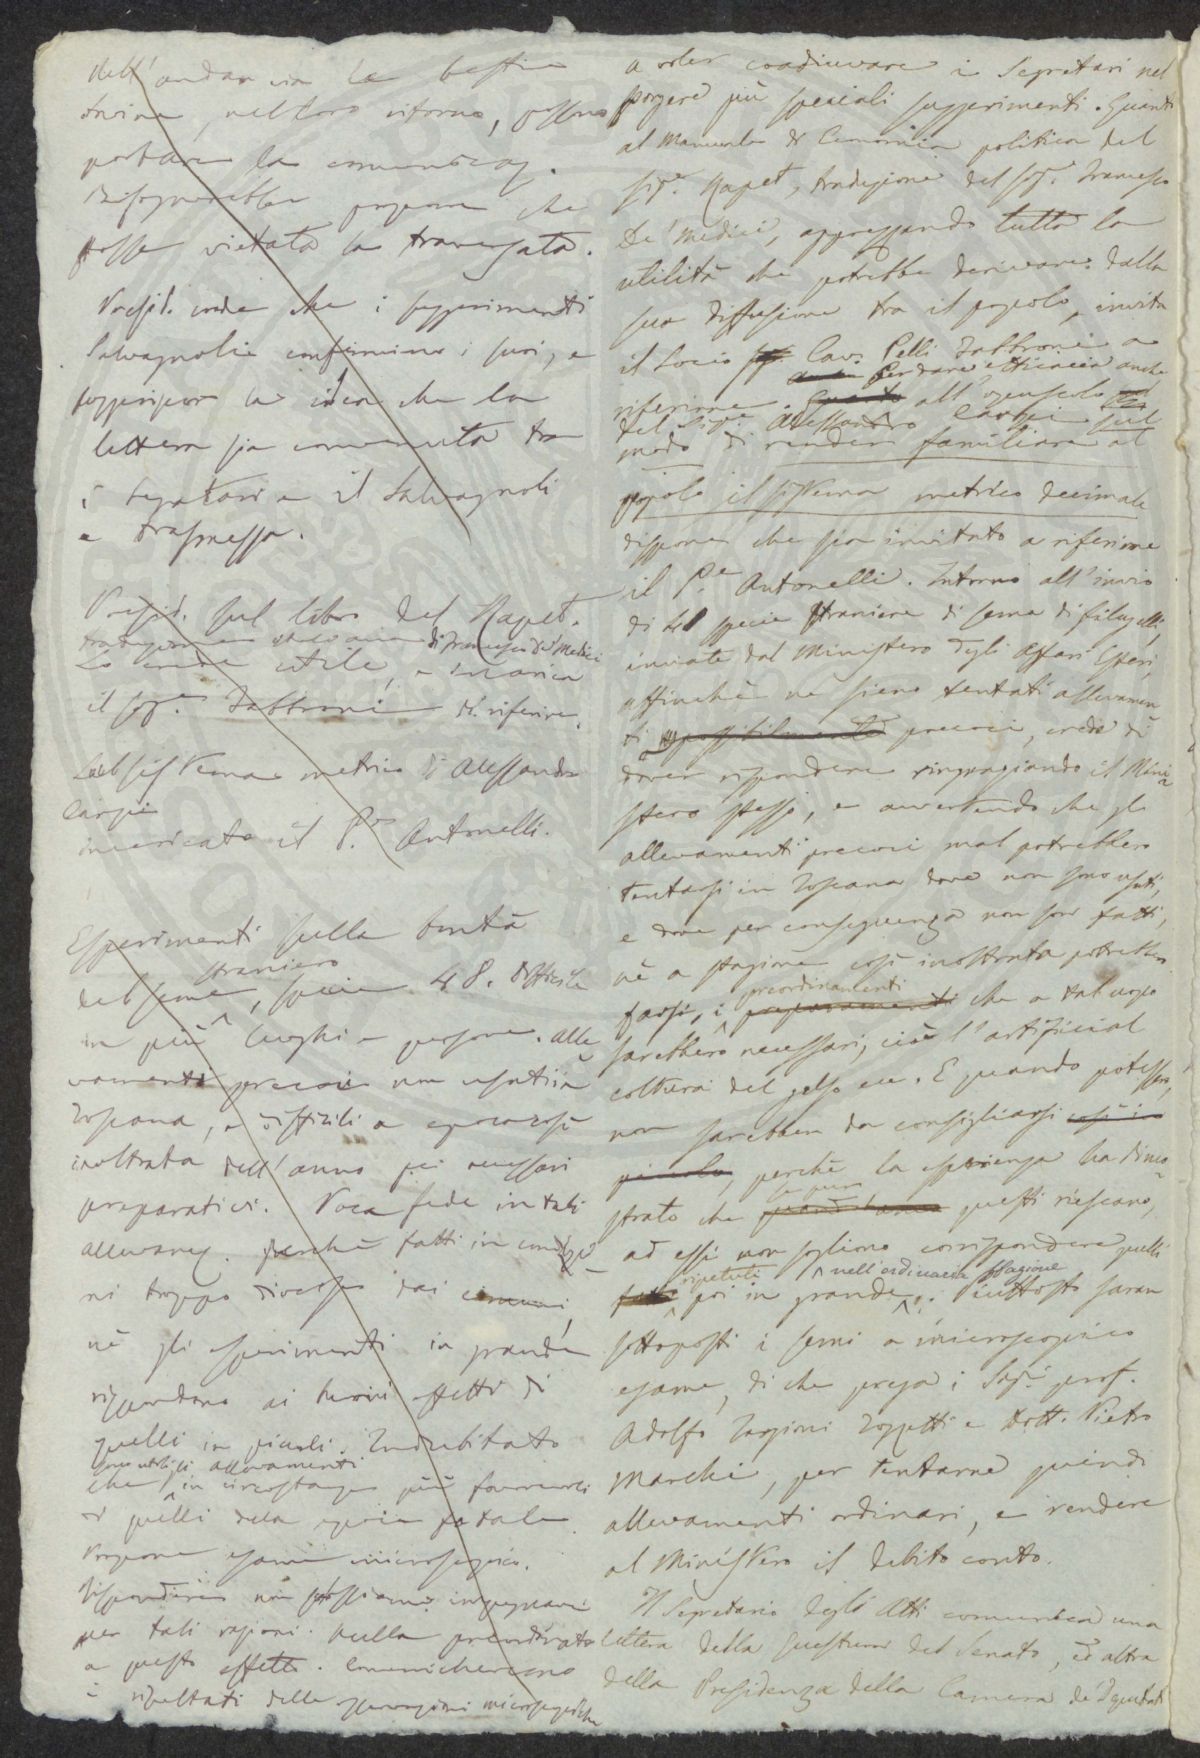 dell'andar via le bestie
bovine, nel loro ritorno, possono
portare la
Bisognerebbe proporre che
fosse vietata la traversata.
Presid. crede che i suggerimenti
Salvagnoli confermino i suoi, e
suggerisce la idea che la
lettera sia convenuta tra
i Segretari e il Salvagnoli
e trasmessa.
Presid. sul libro del Rapet.
traduzione di Francesco De' Medici
Lo crede utile, e incarica
il Sig.r Fabbroni di riferire.
Sul sistema metrico di Alessandro
Carpi
incaricato il P.re Antonelli.
Esperimenti sulla bontà
del seme straniero, specie 48. Difficile
in più luoghi e persone. Alle
vamenti precoci non usati in
Toscana, e difficili a epoca così
inoltrata dell'anno pei necessari
preparativi. Poca fede in tali
allevam. perchè fatti in condizio
ni troppo diverse dai comuni,
nè gli esperimenti in grande
rispondono ai buoni effetti di
quelli in piccoli. Indubitato
che sono utili gli allevamenti in circostanze più
di quelli della
Propone esame microscopico.
Rispondere non possiamo impegnarci
per tali ragioni. Nulla preordinato
a questo effetto. Comunicheremo
i resultati delle osservazioni microscopiche
a voler coadiuvare i Segretari nel
porgere più speciali suggerimenti. Quanto
al Manuale di Economia politica del
Sig.r Rapet, traduzione del Sig.r Francesco
De' Medici, apprezzando tutta la
utilità che potrebbe derivare dalla
sua diffusione tra il popolo, invita
il Socio Cav. Pelli Fabbroni a
riferirne. Per dare efficacia anche all'opuscolo
del Sig.r Alessandro Carpi sul
modo di rendere familiare al
popolo il sistema metrico decimale
dispone che sia invitato a riferirne
il P.re Antonelli. Intorno all'invio
di 48 specie straniere di seme di filugelli,
inviate dal Ministero degli Affari Esteri,
affinchè ne sieno tentati allevamen
ti possibilmente precoci, crede di
dover rispondere ringraziando il Mini
stero stesso, e avvertendo che gli
allevamenti precoci mal potrebbero
tentarsi in Toscana dove non sono usati,
e dove per conseguenza non son fatti,
nè a stagione così inoltrata potrebbero
farsi, i preordinamenti preparamenti che a tal uopo
sarebbero necessari, cioè l'artificial
coltura del gelso ecc. E quando potessero,
non sarebbero da consigliarsi così in
piccolo, perchè la esperienza ha dimo
strato che seppur quand'anco questi riescano,
ad essi non sogliono corrispondere quelli
fatti ripetuti poi in grande nell'ordinaria stagione. Piuttosto saran
sottoposti i semi a microscopico
esame, di che prega i Sigi. prof.
Adolfo Targioni Tozzetti e Dott. Pietro
Marchi, per tentarne quindi
allevamenti ordinari, e rendere
al Ministero il debito conto.
Il Segretario degli Atti comunica una
lettera della Questura del Senato, ed altra
della Presidenza della Camera de' Deputati